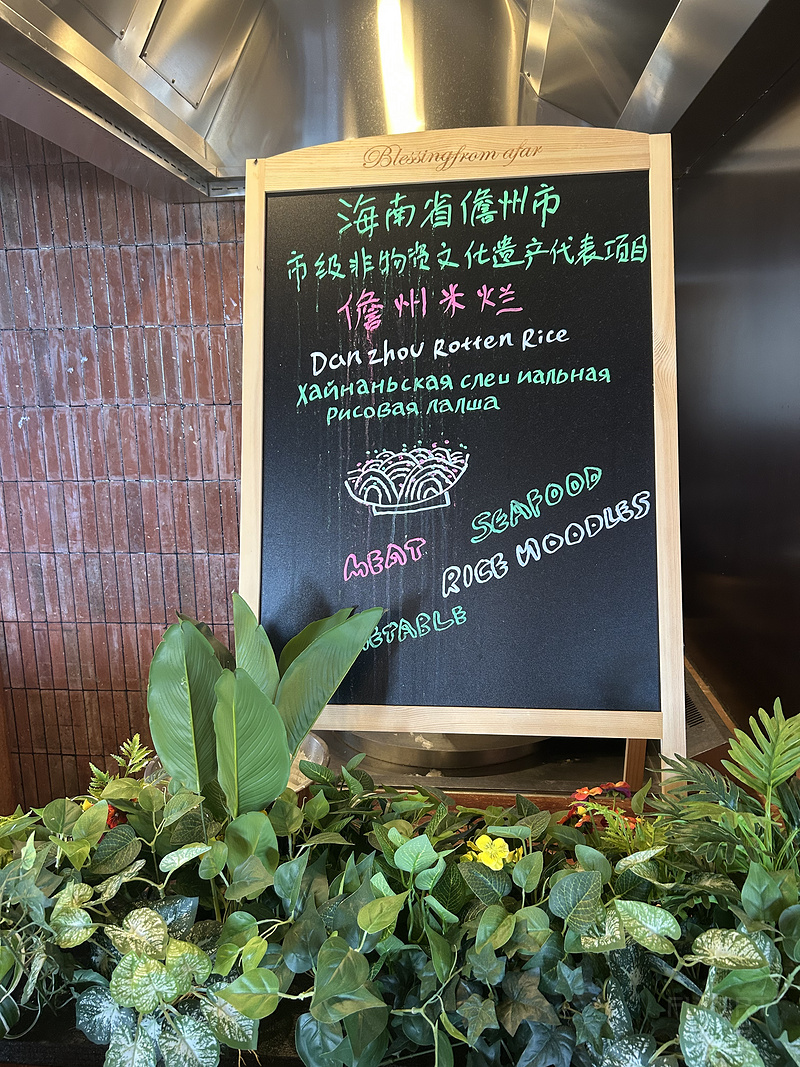 Blessing from afar
海南省儋州市
市级非物资文化遗产代表项目
儋州米烂
Danzhou Rotten Rice
Хайнаньская слеииальная
рисовая лалша
SEAFOOD
MEAT
RICE NOODLES
ETABLE